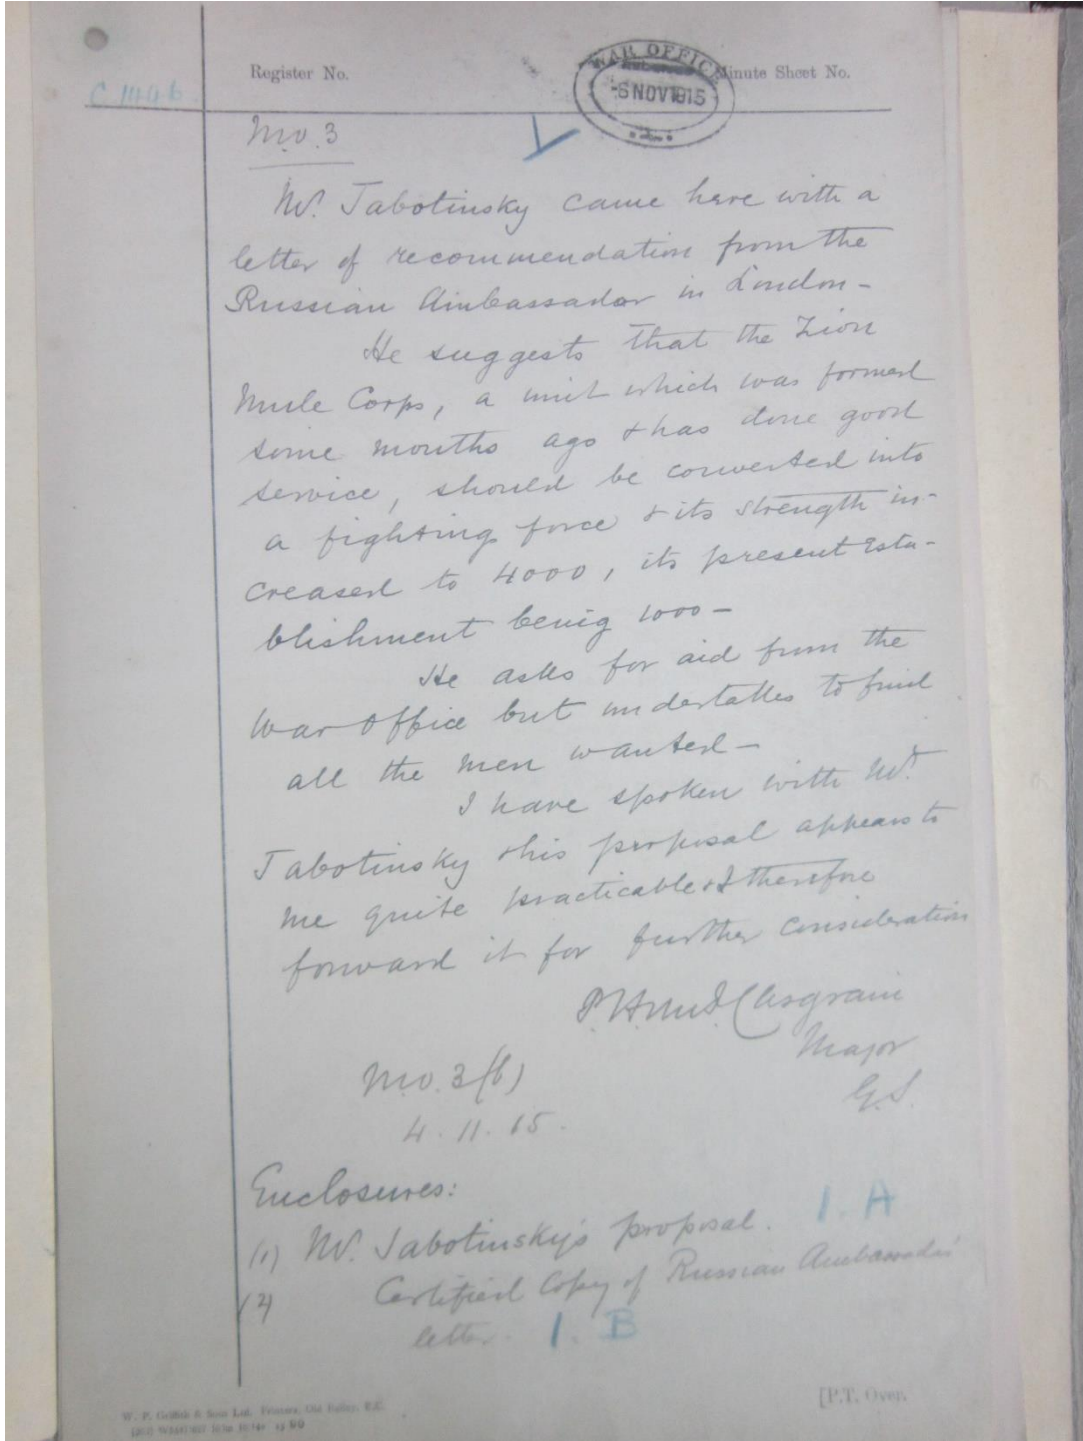 Register No.
Minute Sheet No.
WAR OFFICE
-6 NOV 1915
C 1446
M.O.3
Mr. Jabotinsky came here with a
letter of recommendation from the
Russian Ambassador in London -
He suggests that the Zion
Mule Corps, a unit which was formed
some months ago & has done good
service, should be converted into
a fighting force & its strength in-
creased to 4000, its present esta-
blishment being 1000 -
He asks for aid from the
War Office but undertakes to find
all the men wanted -
I have spoken with Mr.
Jabotinsky & his proposal appears to
me quite practicable & I therefore
forward it for further consideration
Casgrain
Major
G.S.
M.O.3(b)
4.11.15.
Enclosures:
(1) Mr. Jabotinsky's proposal. 1.A
(2) Certified Copy of Russian Ambassador's
letter. 1.B
[P.T. Over.
W. P. Griffith & Sons Ltd. Printers, Old Bailey, E.C.